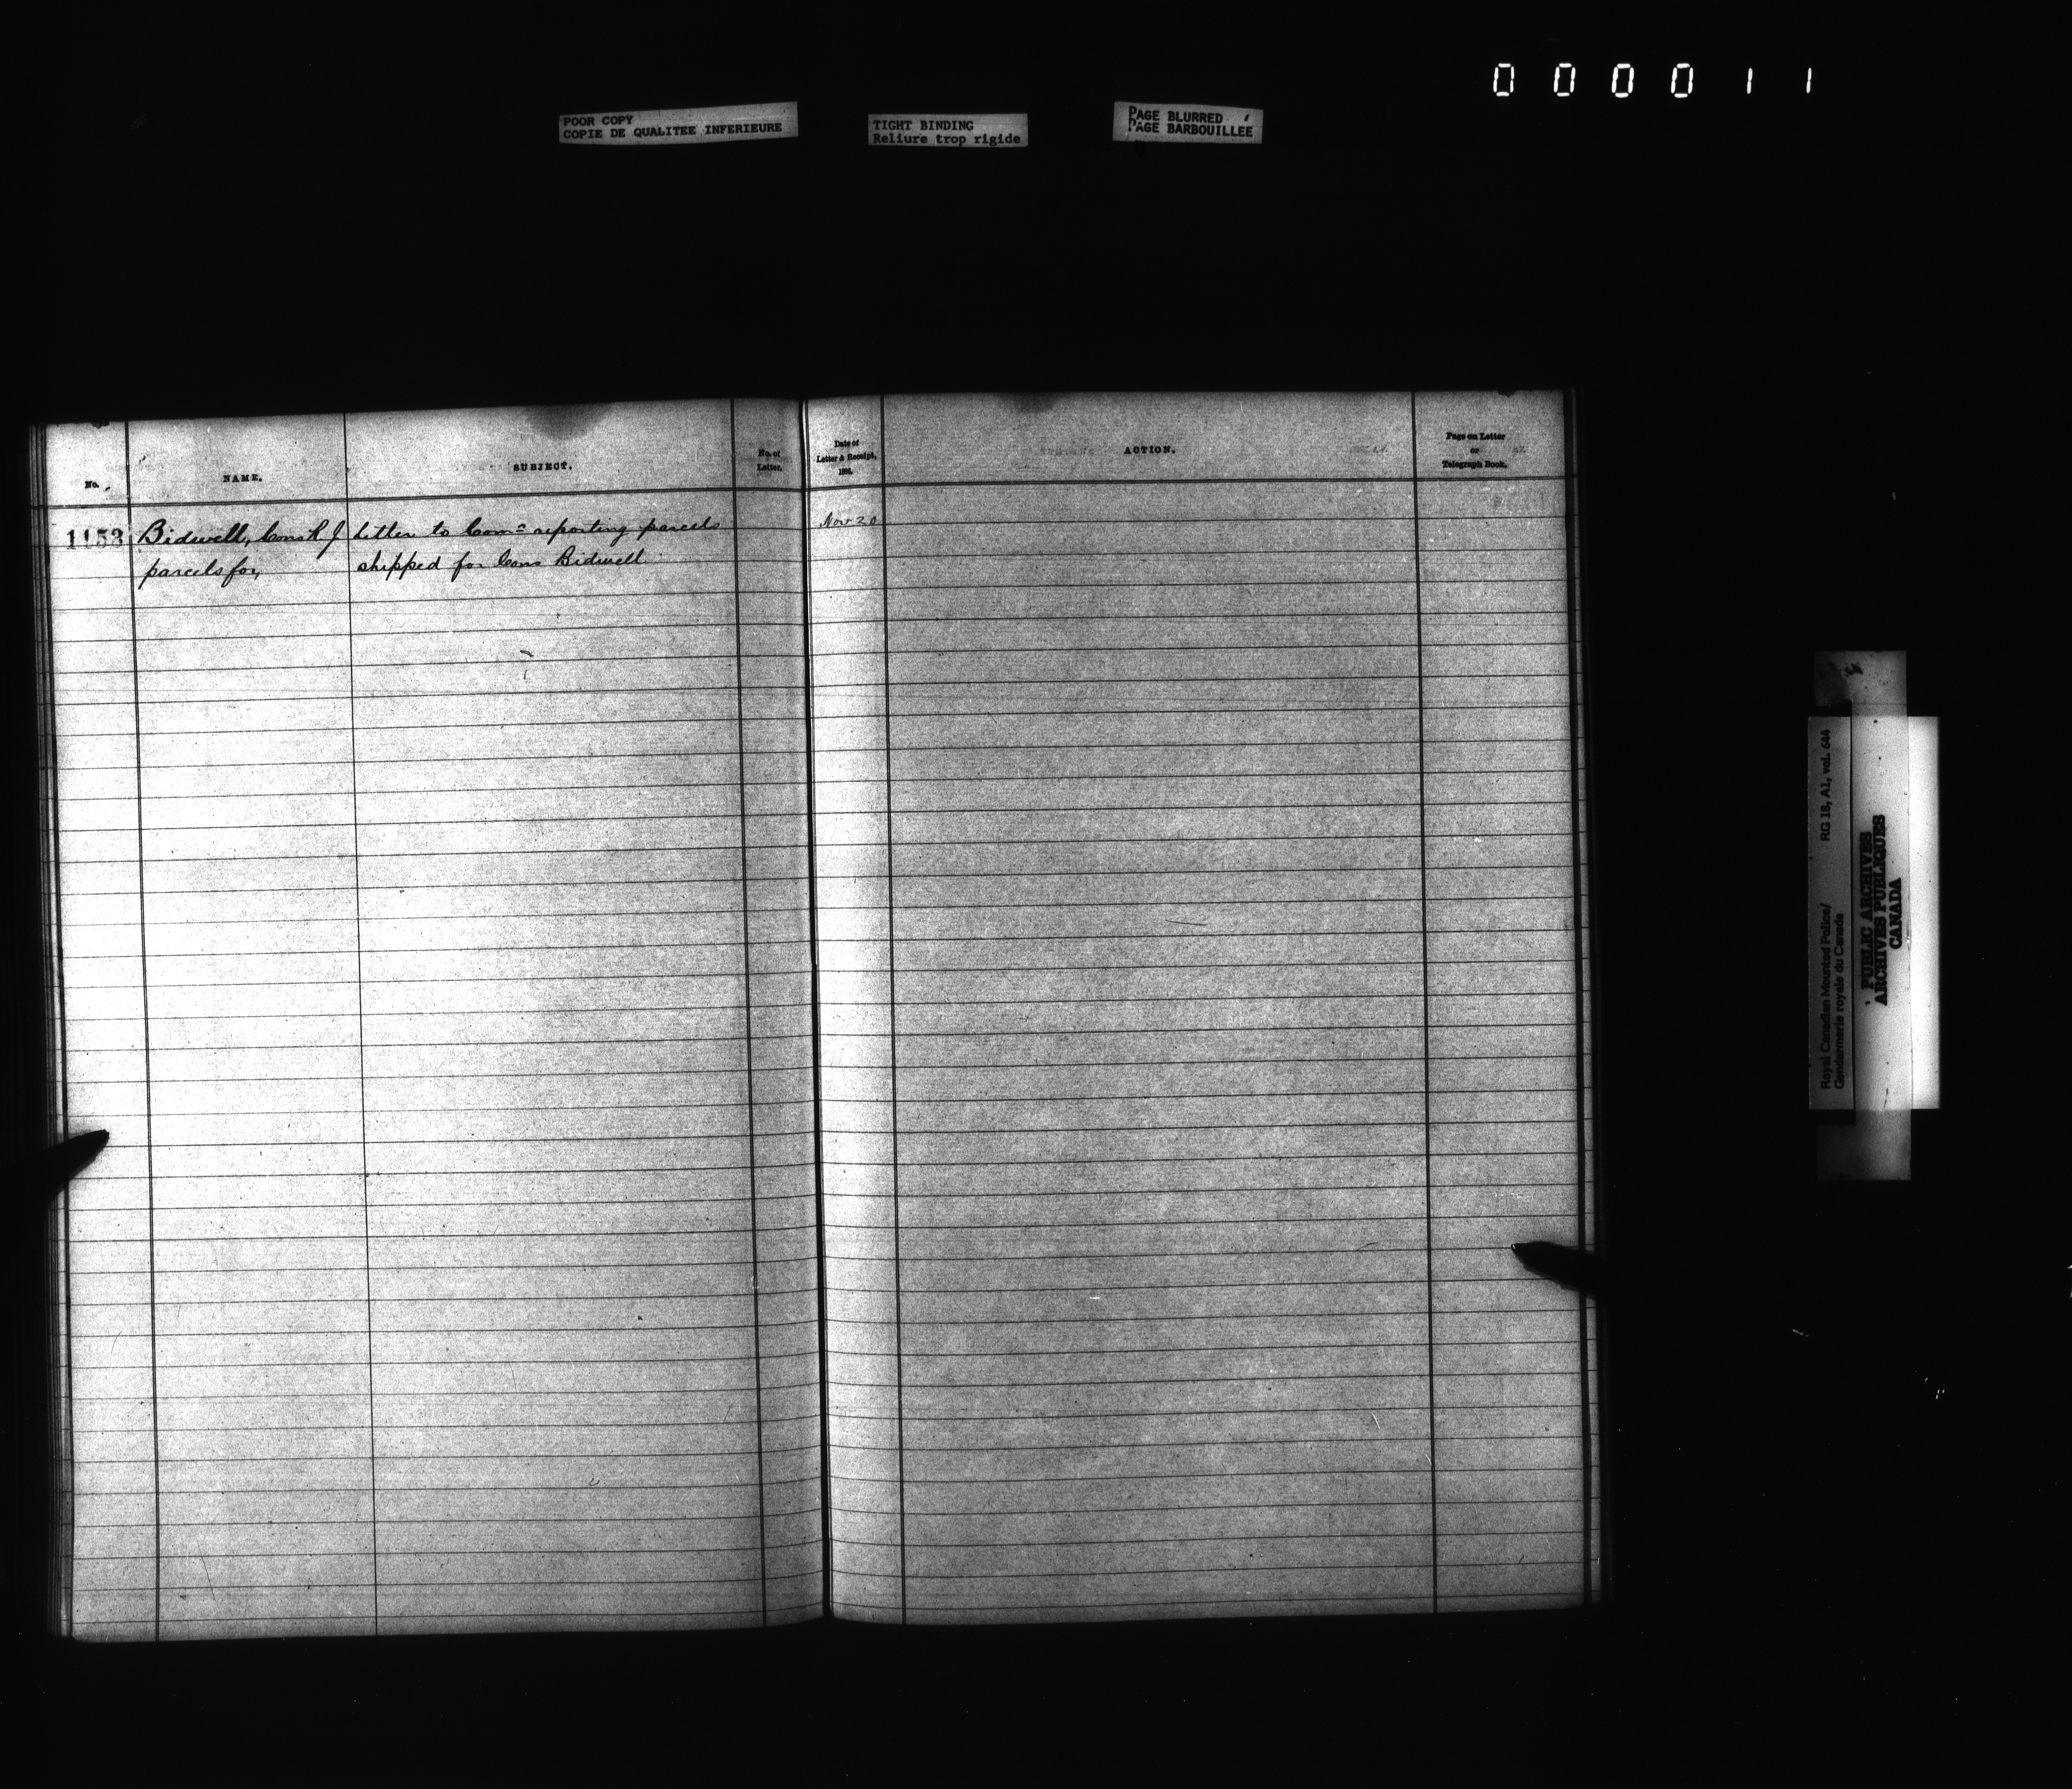 000011
POOR COPY
COPIE DE QUALITEE INFERIEURE
TIGHT BINDING
Reliure trop rigide
PAGE BLURRED
PAGE BARBOUILLEE
No.
NAME.
SUBJECT.
No. of
Letter.
Date of
Letter & Receipt,
ACTION.
Page on Letter
or
Telegraph Book.
1153 Bidwell, Cons R J Letter to Comr reporting parcels Nov 20
parcels for, shipped for Cons Bidwell.
Royal Canadian Mounted Police/ RG 18, A1, vol. 644
Gendarmerie royale du Canada
PUBLIC ARCHIVES
ARCHIVES PUBLIQUES
CANADA